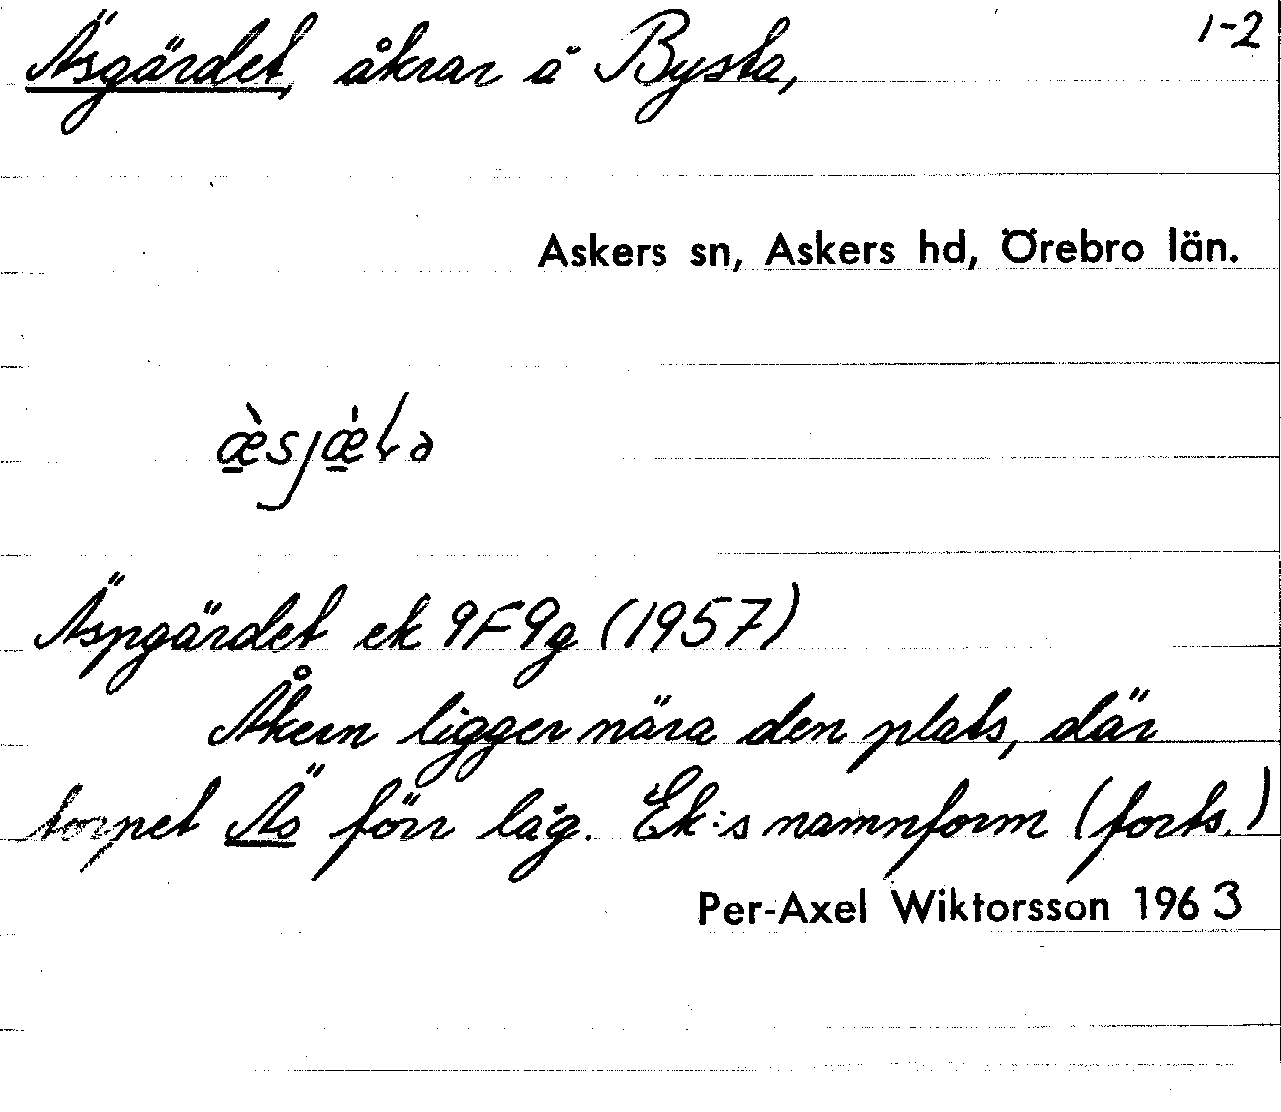 1-2
Äsgärdet, åkrar å Bysta,
Askers sn, Askers hd, Örebro län.
Äspgärdet ek 9F9g (1957)
Åkern ligger nära den plats, där
torpet Äs förr låg. Ek:s namnform (forts.)
Per-Axel Wiktorsson 1963